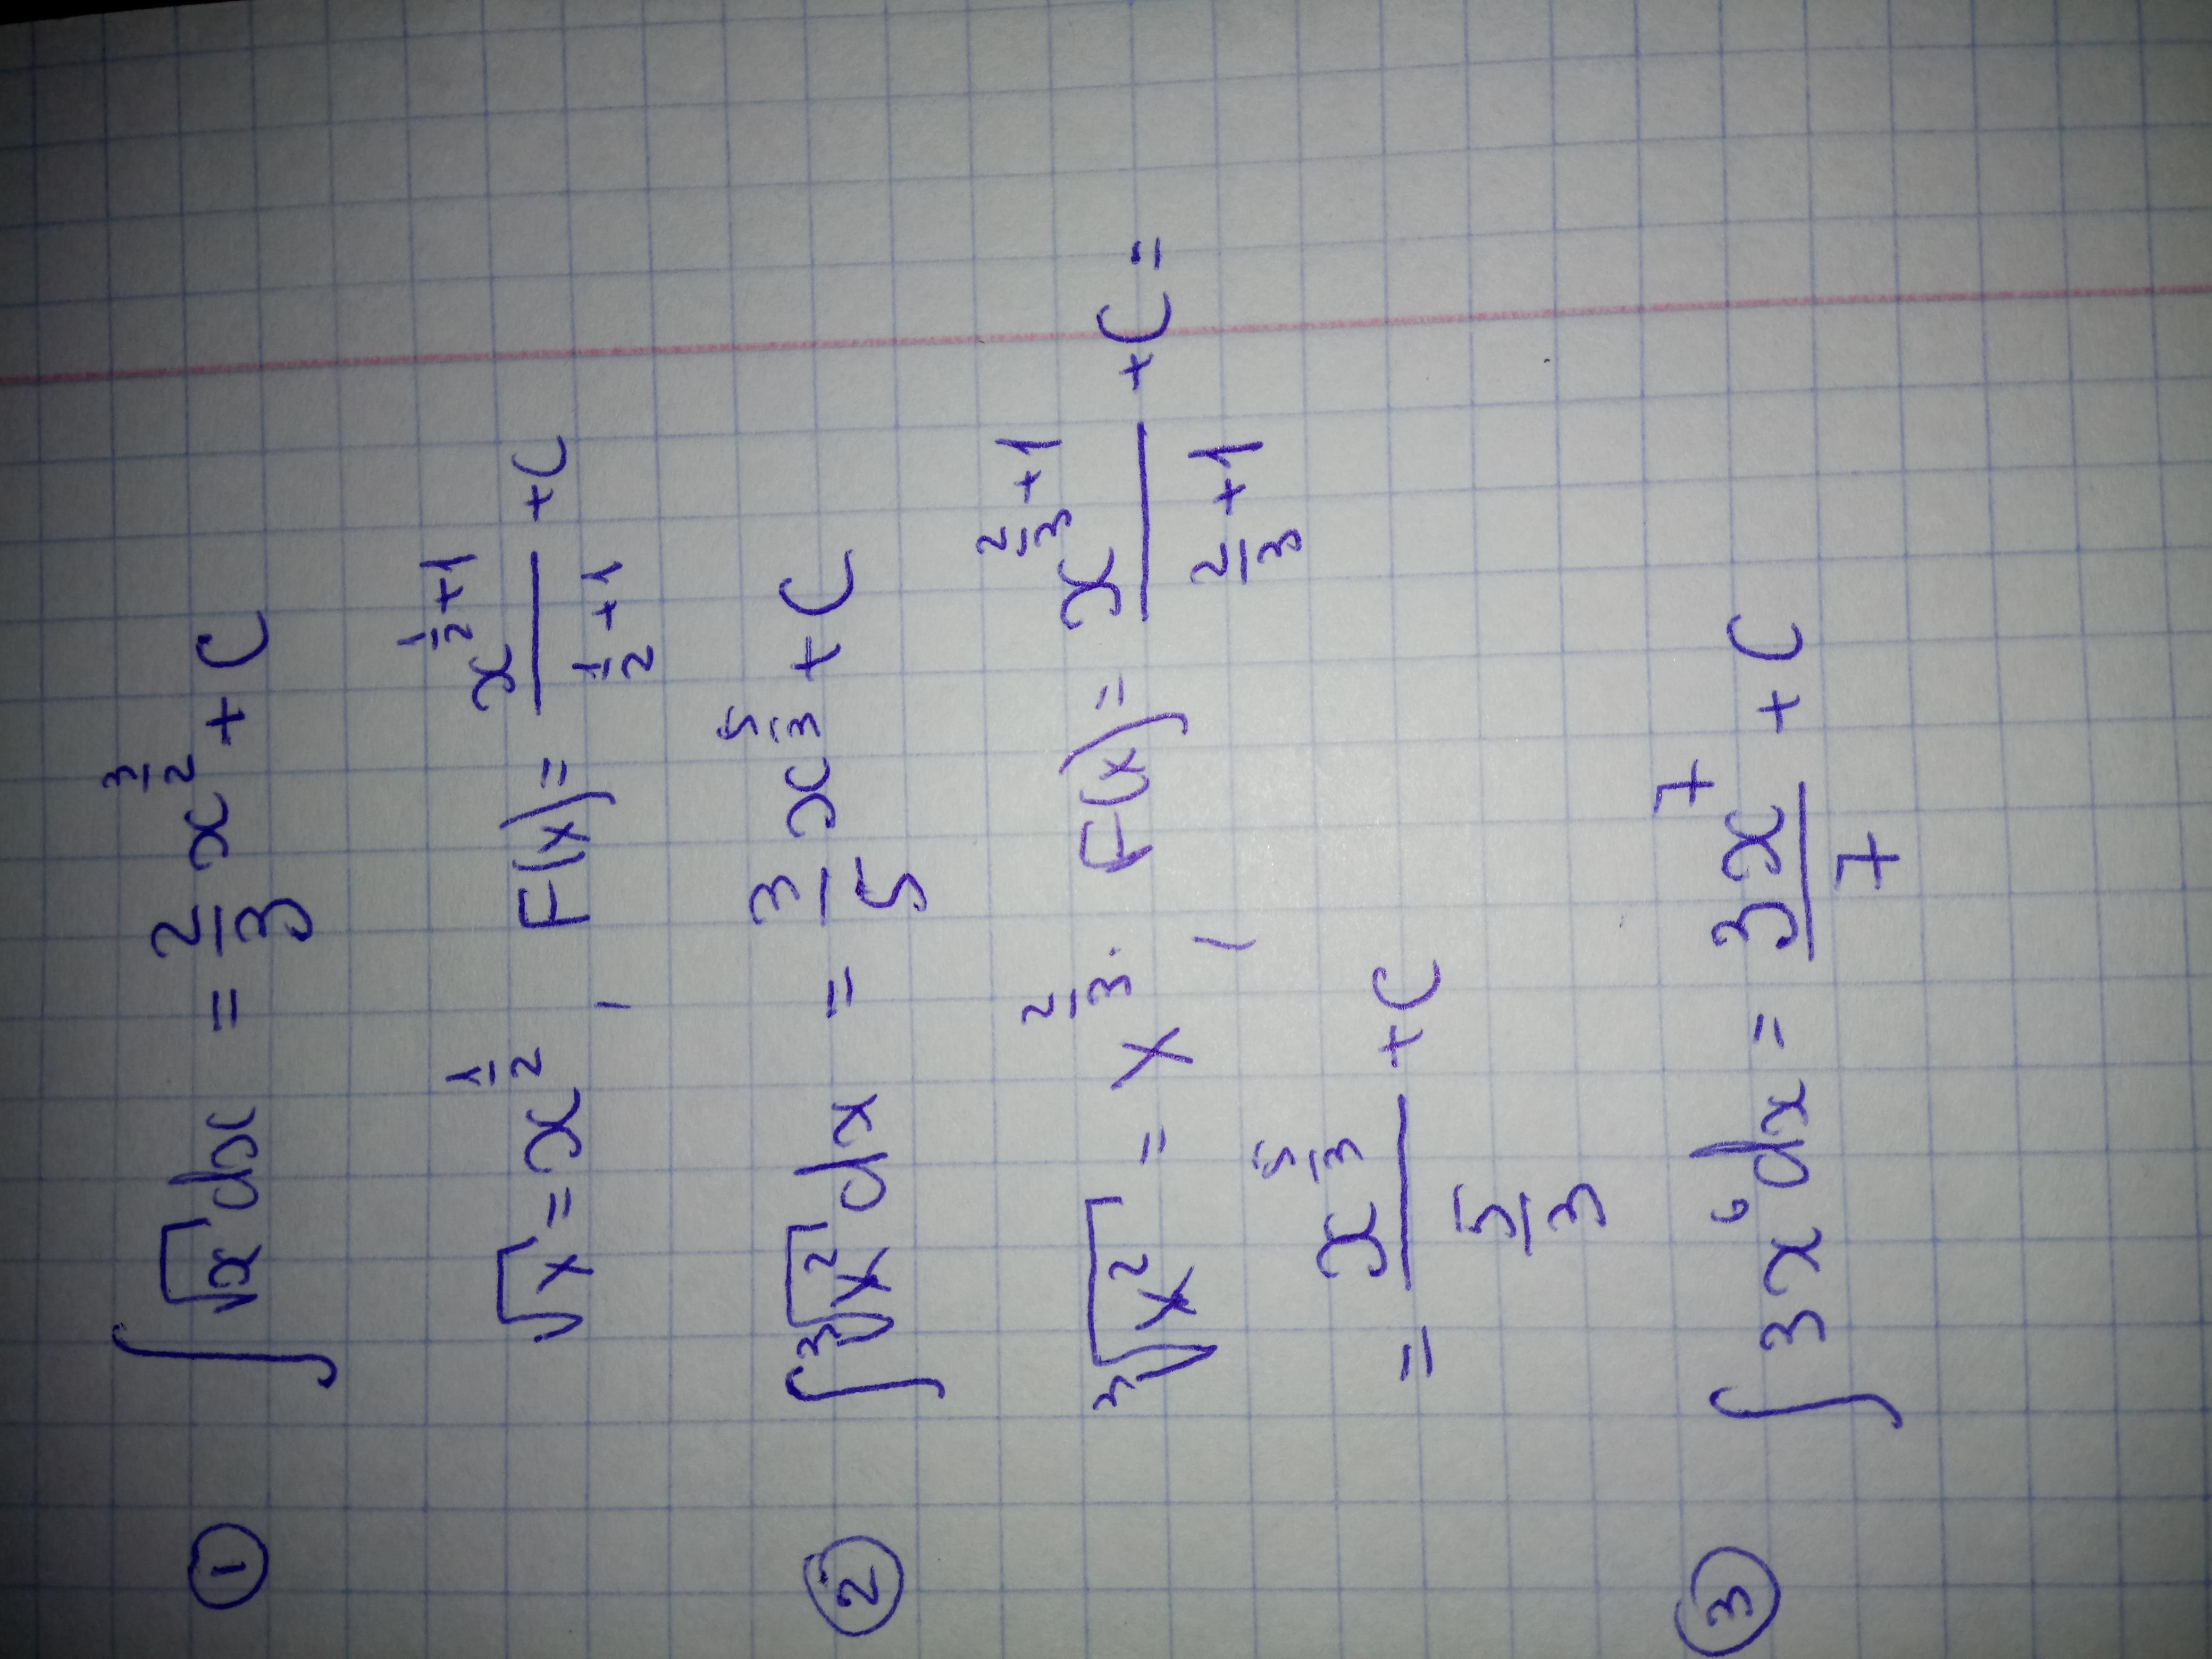 ① ∫√x dx = 2/3 x^(3/2) + C
√x = x^(1/2), F(x) = x^(1/2+1)/(1/2+1) + C
② ∫∛(x²) dx = 3/5 x^(5/3) + C
∛(x²) = x^(2/3), F(x) = x^(2/3+1)/(2/3+1) + C =
= x^(5/3)/(5/3) + C
③ ∫3x⁶dx = 3x⁷/7 + C